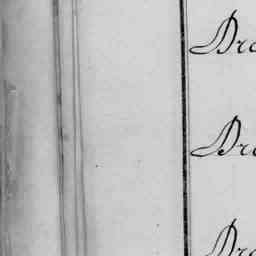 Dra
Dra
Dra